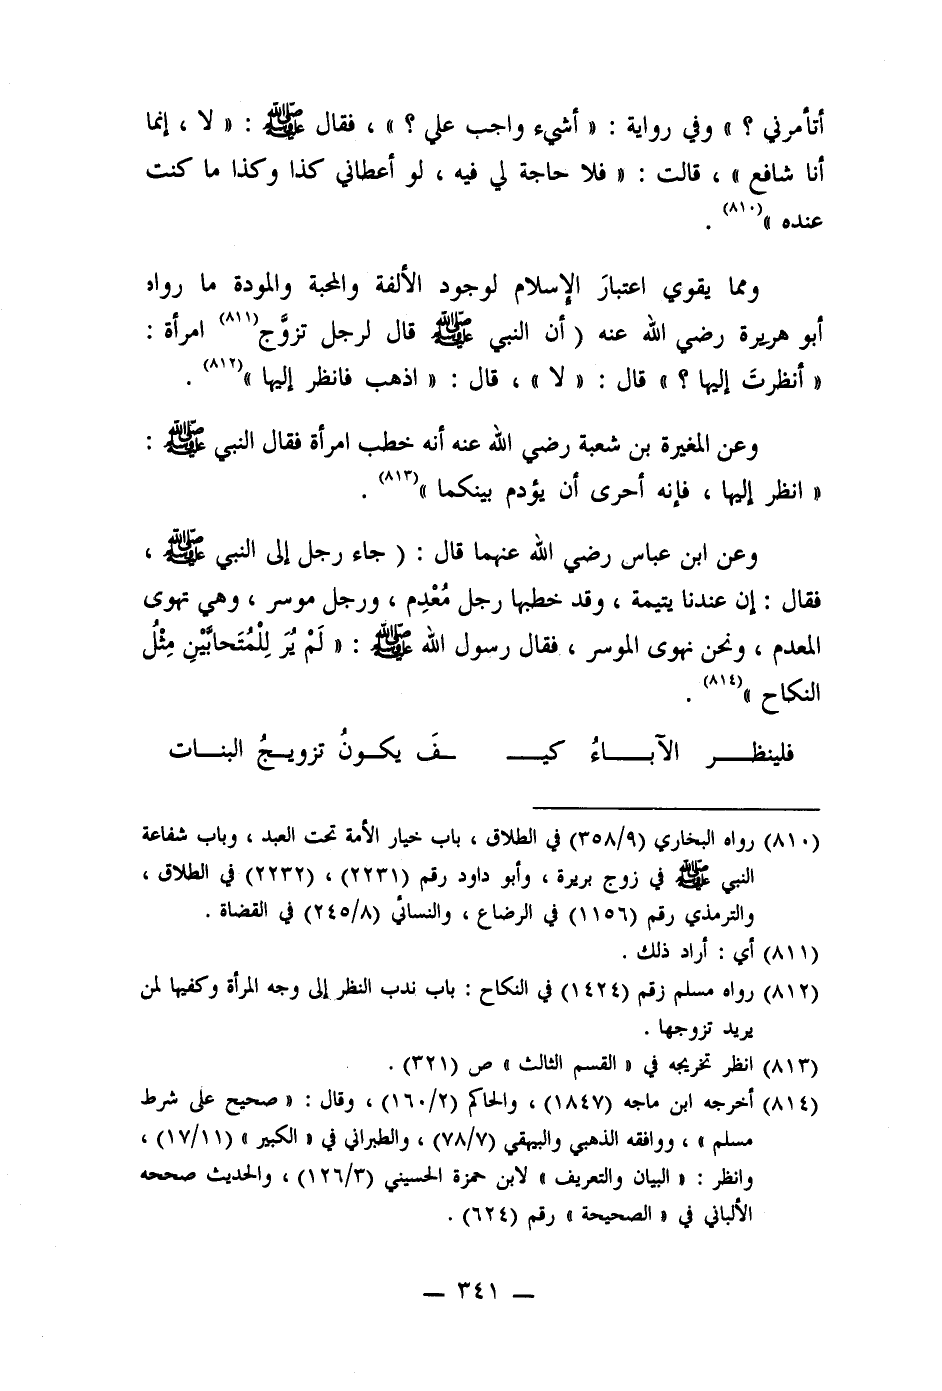 أتأمرني ؟ » وفي رواية : « أشيء واجب علي ؟ » ، فقال ﷺ : « لا ، إنما
أنا شافع » ، قالت : « فلا حاجة لي فيه ، لو أعطاني كذا وكذا ما كنت
عنده »(٨١٠) .
ومما يقوي اعتبارَ الإسلام لوجود الألفة والمحبة والمودة ما رواه
أبو هريرة رضي الله عنه ( أن النبي ﷺ قال لرجل تزوَّج(٨١١) امرأة :
« أنظرتَ إليها ؟ » قال : « لا » ، قال : « اذهب فانظر إليها »(٨١٢) .
وعن المغيرة بن شعبة رضي الله عنه أنه خطب امرأة فقال النبي ﷺ :
« انظر إليها ، فإنه أحرى أن يؤدم بينكما »(٨١٣) .
وعن ابن عباس رضي الله عنهما قال : ( جاء رجل إلى النبي ﷺ ،
فقال : إن عندنا يتيمة ، وقد خطبها رجل مُعْدِم ، ورجل موسر ، وهي تهوى
المعدم ، ونحن نهوى الموسر ، فقال رسول الله ﷺ : « لَمْ يُرَ لِلْمُتَحابَّيْنِ مِثْلُ
النكاح »(٨١٤) .
فلينظـــر الآبـــاءُ كيـــفَ يكـونُ تزويـجُ البنـات
(٨١٠) رواه البخاري (٣٥٨/٩) في الطلاق ، باب خيار الأمة تحت العبد ، وباب شفاعة
النبي ﷺ في زوج بريرة ، وأبو داود رقم (٢٢٣١) ، (٢٢٣٢) في الطلاق ،
والترمذي رقم (١١٥٦) في الرضاع ، والنسائي (٢٤٥/٨) في القضاة .
(٨١١) أي : أراد ذلك .
(٨١٢) رواه مسلم زقم (١٤٢٤) في النكاح : باب ندب النظر إلى وجه المرأة وكفيها لمن
يريد تزوجها .
(٨١٣) انظر تخريجه في « القسم الثالث » ص (٣٢١) .
(٨١٤) أخرجه ابن ماجه (١٨٤٧) ، والحاكم (١٦٠/٢) ، وقال : « صحيح على شرط
مسلم » ، ووافقه الذهبي والبيهقي (٧٨/٧) ، والطبراني في « الكبير » (١٧/١١) ،
وانظر : « البيان والتعريف » لابن حمزة الحسيني (١٢٦/٣) ، والحديث صححه
الألباني في « الصحيحة » رقم (٦٢٤) .
— ٣٤١ —